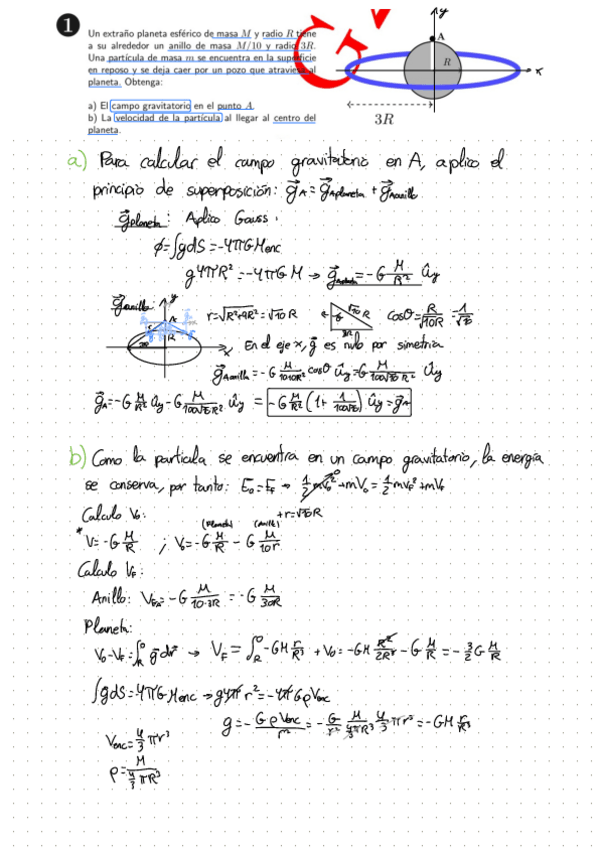 1
Un extraño planeta esférico de masa M y radio R tiene
a su alrededor un anillo de masa M/10 y radio 3R.
Una partícula de masa m se encuentra en la superficie
en reposo y se deja caer por un pozo que atraviesa al
planeta. Obtenga:
a) El campo gravitatorio en el punto A.
b) La velocidad de la partícula al llegar al centro del
planeta.
y
A
R
x
3R
a) Para calcular el campo gravitatorio en A, aplico el
principio de superposición: g⃗A = g⃗Aplaneta + g⃗Aanillo
g⃗planeta: Aplico Gauss.
ϕ=∫gdS = -4πGMenc
g4πR² = -4πGM → g⃗Aplaneta = -G M/R² ûy
g⃗anillo
y
A
R
x
r=√R²+9R² = √10 R
√10 R
R
3R
cosθ = R/√10R = 1/√10
En el eje x, g⃗ es nulo por simetria
g⃗Aanillo = -G M/10·10R² cosθ ûy = -G M/100√10 R² ûy
g⃗A = -G M/R² ûy - G M/100√10 R² ûy = -G M/R² (1+ 1/100√10) ûy = g⃗A
b) Como la particula se encuentra en un campo gravitatorio, la energía
se conserva, por tanto: E₀=EF → 1/2 mv₀² + mV₀ = 1/2 mvF² + mVF
Calculo V₀:
(Planeta) (Anillo) + r=√10R
* V = -G M/R ; V₀ = -G M/R - G M/10r
Calculo VF:
Anillo: VFA = -G M/10·3R = -G M/30R
Planeta:
V₀-VF = ∫ g⃗dr⃗ → VF = ∫ -GM r/R³ + V₀ = -GM R²/2R³ - G M/R = -3/2 G M/R
∫gdS = 4πGMenc → g4πr² = -4πGρVenc
g = - GρVenc/r² = - G/r² M/4/3πR³ 4/3 πr³ = -GM r/R³
Venc = 4/3 πr³
ρ = M/4/3 πR³